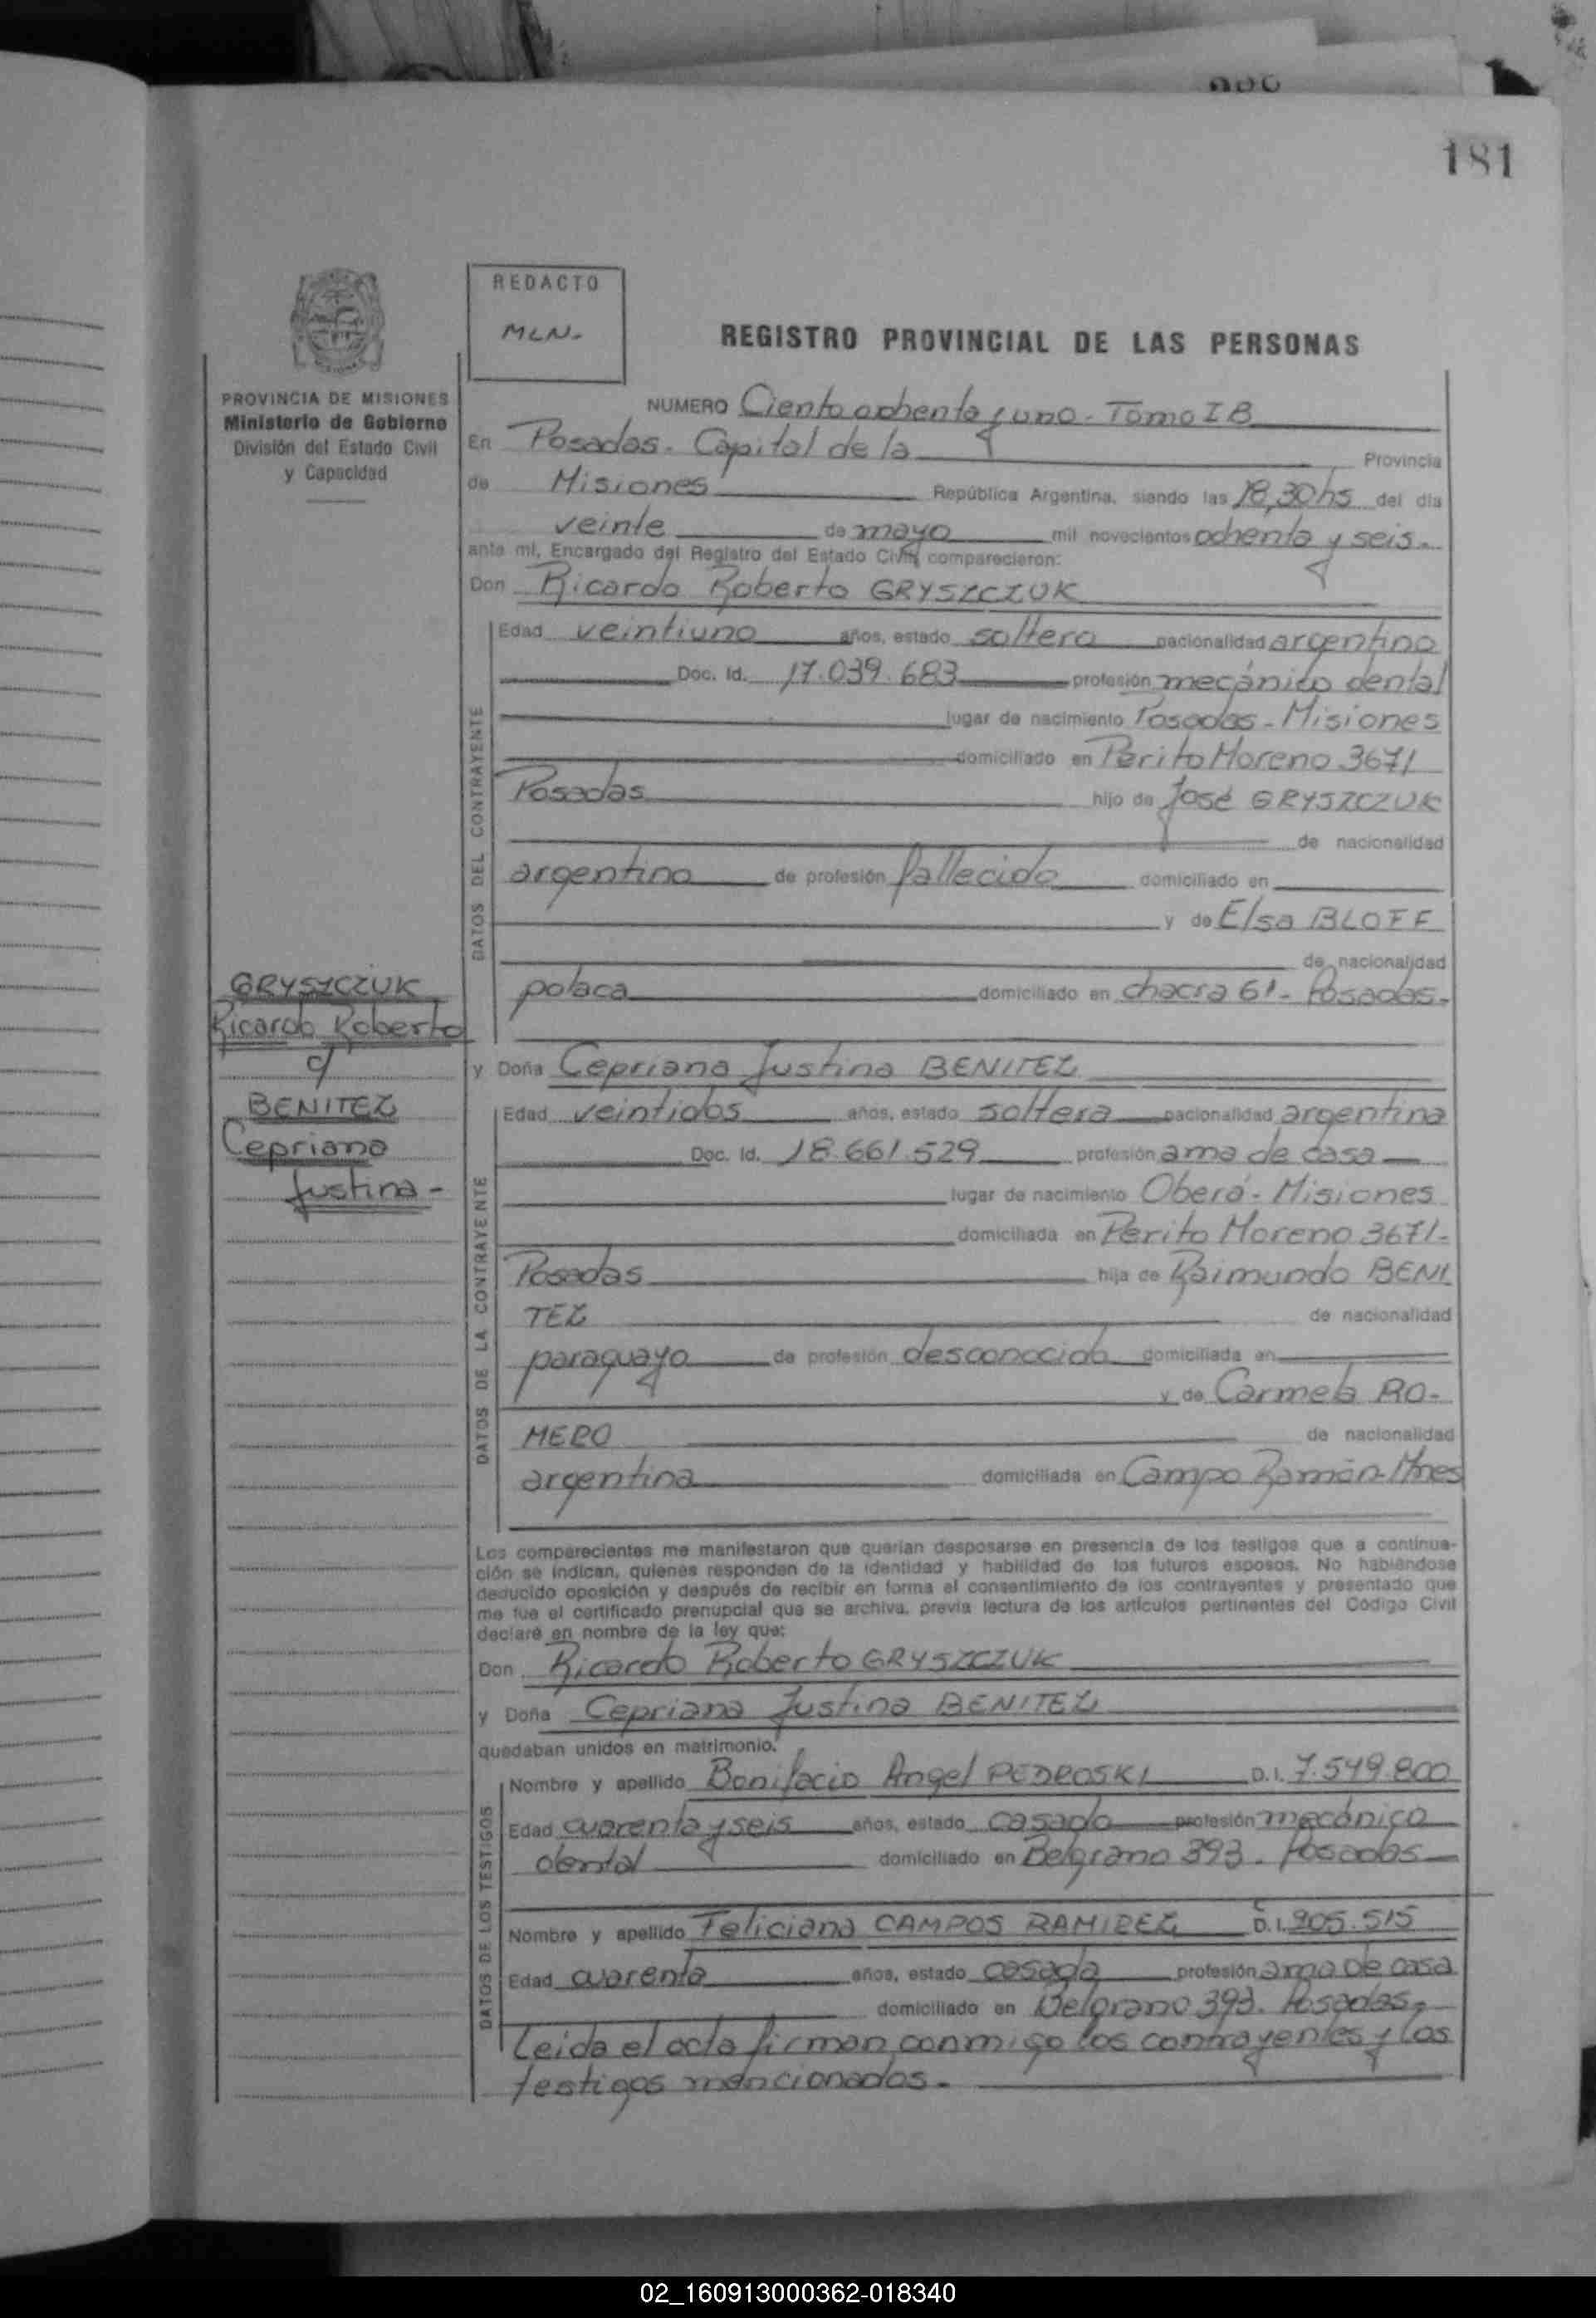 181
REDACTO
MLN.
REGISTRO PROVINCIAL DE LAS PERSONAS
PROVINCIA DE MISIONES
Ministerio de Gobierno
División del Estado Civil
y Capacidad
NUMERO Ciento ochenta y uno - Tomo I B
En Posadas. Capital de la Provincia
de Misiones República Argentina, siendo las 18,30 hs del día
veinte de mayo mil novecientos ochenta y seis.
ante mí, Encargado del Registro del Estado Civil, comparecieron:
Don Ricardo Roberto GRYSZCZUK
DATOS DEL CONTRAYENTE
Edad veintiuno años, estado soltero nacionalidad argentino
Doc. Id. 17.039.683 profesión mecánico dental
lugar de nacimiento Posadas - Misiones
domiciliado en Perito Moreno 3671
Posadas hijo de José GRYSZCZUK
de nacionalidad
argentino de profesión fallecido domiciliado en
y de Elsa BLOFF
de nacionalidad
polaca domiciliado en chacra 61 - Posadas.
GRYSZCZUK
Ricardo Roberto
c/
BENITEZ
Cepriana
Justina -
y Doña Cepriana Justina BENITEZ
DATOS DE LA CONTRAYENTE
Edad veintidos años, estado soltera nacionalidad argentina
Doc. Id. 18.661.529 profesión ama de casa
lugar de nacimiento Oberá - Misiones
domiciliada en Perito Moreno 3671-
Posadas hija de Raimundo BENI
TEZ de nacionalidad
paraguayo de profesión desconocido domiciliada en
y de Carmela RO-
MERO de nacionalidad
argentina domiciliada en Campo Ramón - Mnes
Los comparecientes me manifestaron que querían desposarse en presencia de los testigos que a continua-
ción se indican, quienes responden de la identidad y habilidad de los futuros esposos. No habiéndose
deducido oposición y después de recibir en forma el consentimiento de los contrayentes y presentado que
me fue el certificado prenupcial que se archiva, previa lectura de los artículos pertinentes del Código Civil
declaré en nombre de la ley que:
Don Ricardo Roberto GRYSZCZUK
y Doña Cepriana Justina BENITEZ
quedaban unidos en matrimonio.
DATOS DE LOS TESTIGOS
Nombre y apellido Bonifacio Angel PEDROSKI D.I. 7.549.800
Edad cuarenta y seis años, estado casado profesión mecánico
dental domiciliado en Belgrano 393 - Posadas
Nombre y apellido Feliciana CAMPOS RAMIREZ C D.I. 905.515
Edad cuarenta años, estado casada profesión ama de casa
domiciliado en Belgrano 393. Posadas.
Leida el acta firman conmigo los contrayentes y los
testigos mencionados.
02_160913000362-018340